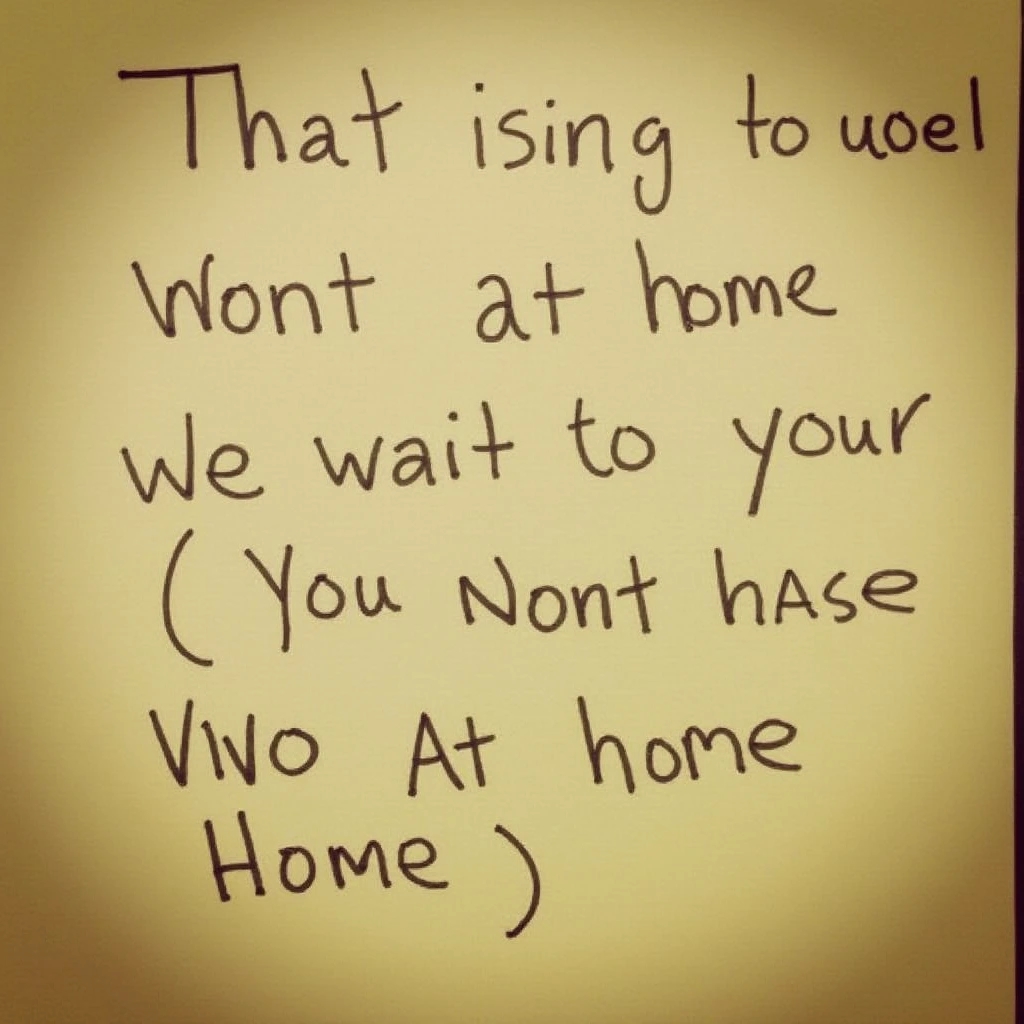 That ising to uoel
Wont at home
We wait to your
(You Nont hAse
VIVO At home
Home)